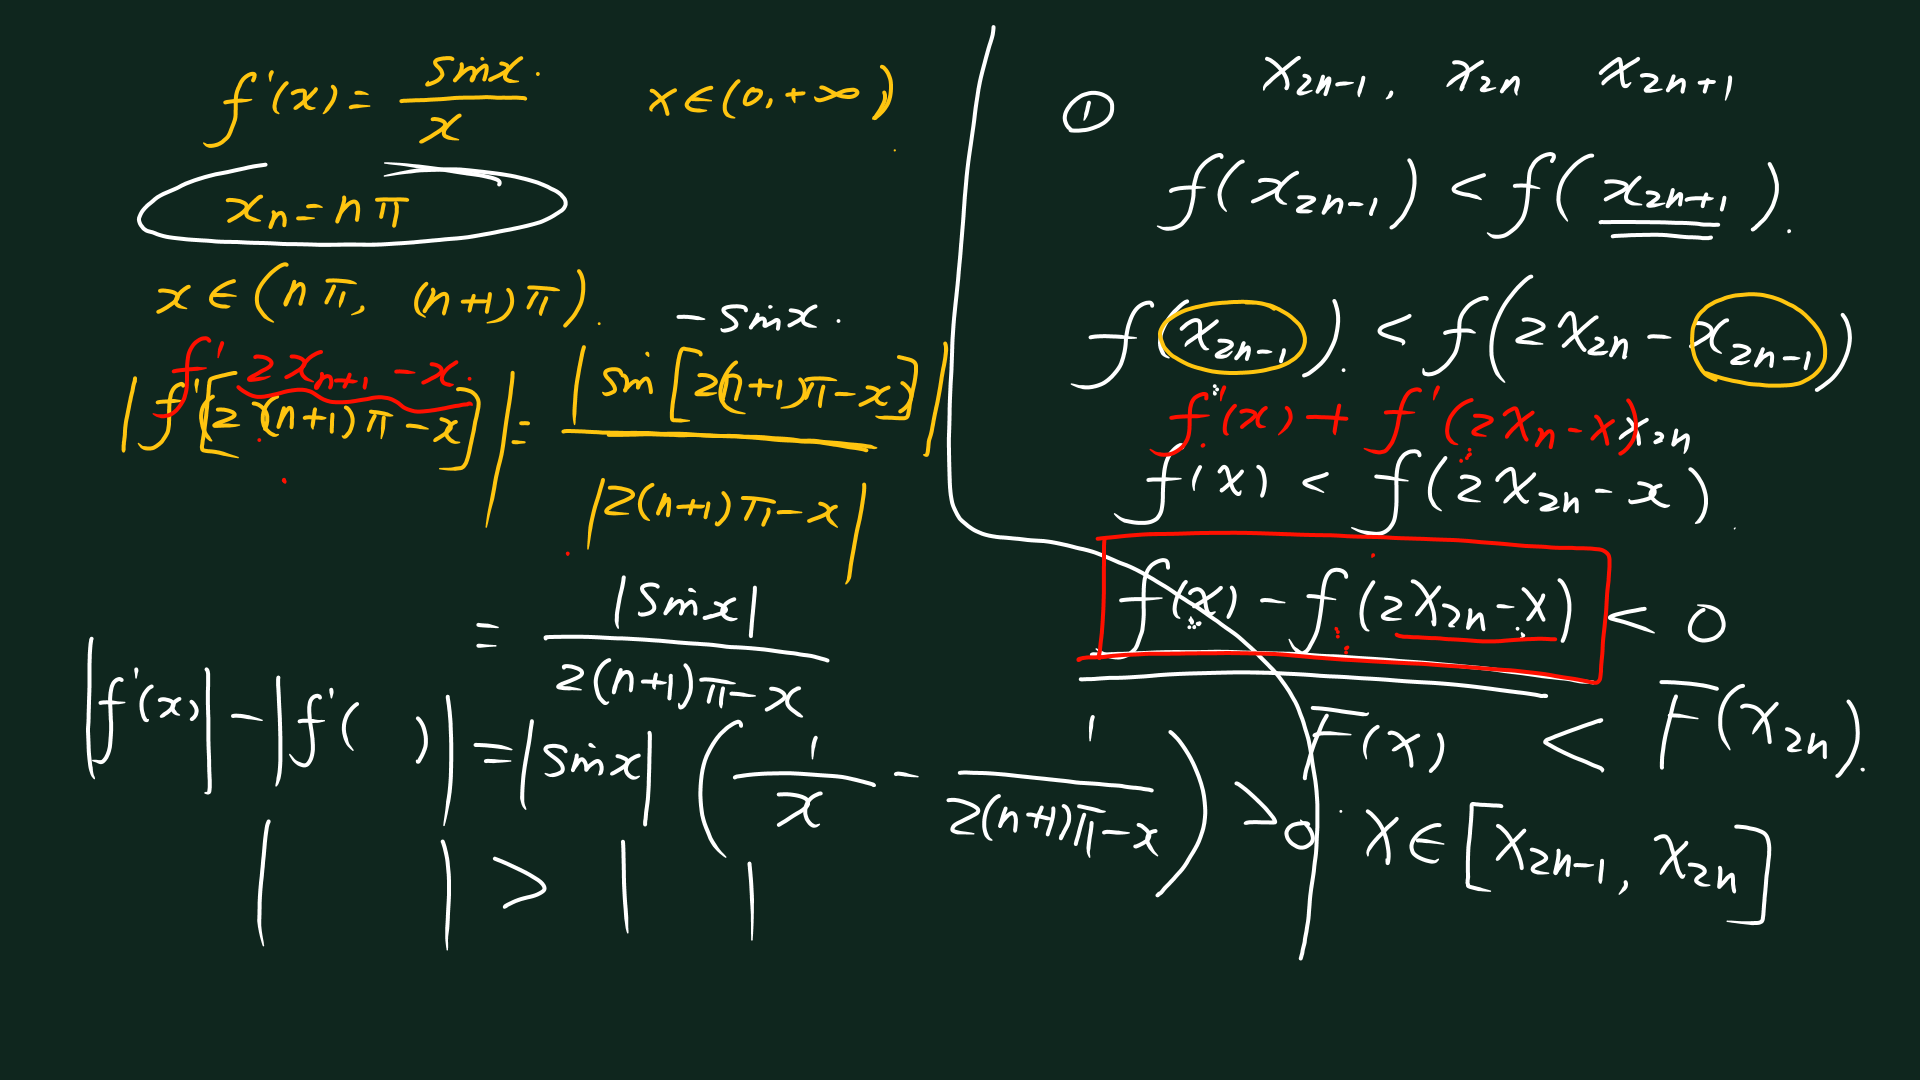 f'(x) = sinx/x x∈(0,+∞)
xₙ = nπ
x∈(nπ, (n+1)π).
-sinx.
f' 2xₙ₊₁ - x.
|f'[2(n+1)π-x]| = |sin[2(n+1)π-x]| / |2(n+1)π-x|
= |sinx| / 2(n+1)π-x
|f'(x)| - |f'( )| = |sinx| (1/x - 1/2(n+1)π-x) > 0
| | > | |
① x₂ₙ₋₁, x₂ₙ x₂ₙ₊₁
f(x₂ₙ₋₁) < f(x₂ₙ₊₁).
f(x₂ₙ₋₁). < f(2x₂ₙ - x₂ₙ₋₁)
f'(x) + f'(2xₙ-x) x₂ₙ
f(x) < f(2x₂ₙ - x)
f(x) - f(2x₂ₙ-x) < 0
F(x) < F(x₂ₙ).
x∈[x₂ₙ₋₁, x₂ₙ]